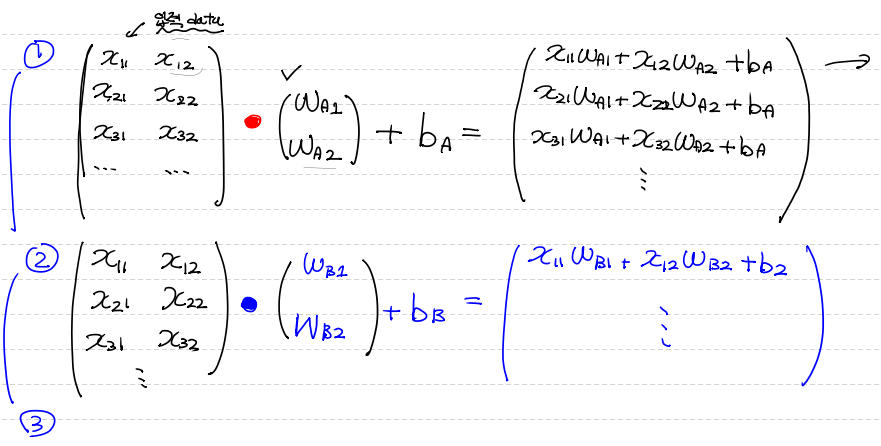 입력 data
①
x₁₁ x₁₂
x₂₁ x₂₂
x₃₁ x₃₂
... ...
•
✓
W_A1
W_A2
+ b_A =
x₁₁W_A1 + x₁₂W_A2 + b_A →
x₂₁W_A1 + x₂₂W_A2 + b_A
x₃₁W_A1 + x₃₂W_A2 + b_A
⋮
②
x₁₁ x₁₂
x₂₁ x₂₂
x₃₁ x₃₂
⋮
•
W_B1
W_B2
+ b_B =
x₁₁W_B1 + x₁₂W_B2 + b₂
⋮
③